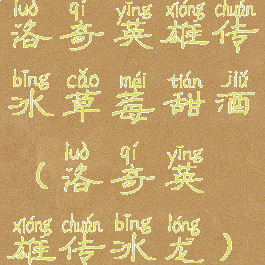 luò qí yīng xióng chuán
洛奇英雄传
bīng cǎo méi tián jiǔ
冰草莓甜酒
luò qí yīng
（洛奇英
xióng chuán bīng lóng
雄传冰龙）